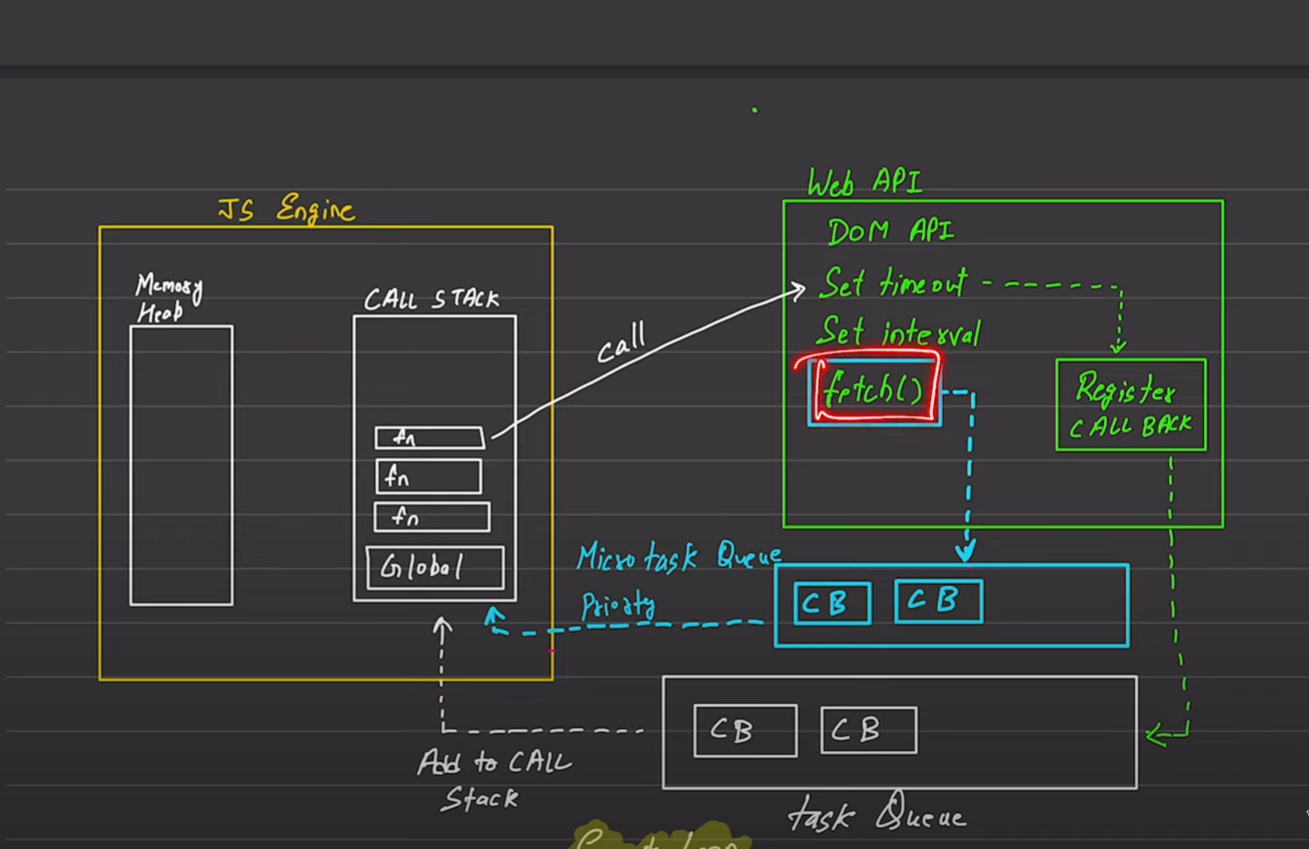 JS Engine
Memory
Heap
CALL STACK
fn
fn
fn
Global
call
Web API
DOM API
Set timeout
Set interval
fetch()
Register
CALL BACK
Microtask Queue
Priorty
CB
CB
CB
CB
Add to CALL
Stack
task Queue